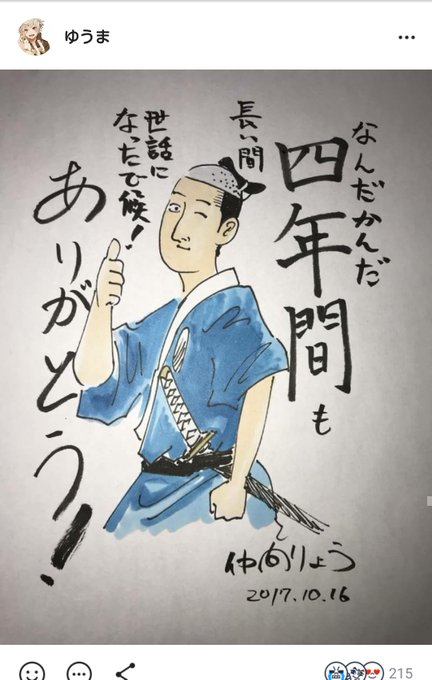 ゆうま
なんだかんだ
四年間も
長い間
世話に
なったで候!
ありがとう!
仲向りょう
2017.10.16
215